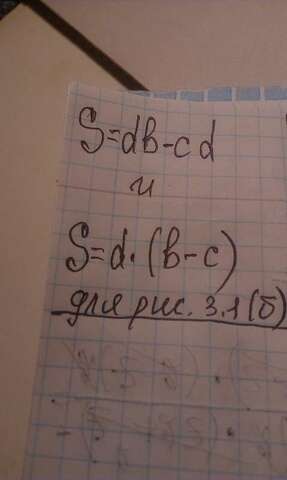 S=db-cd
и
S=d·(b-c)
для рис. 3.1(б)